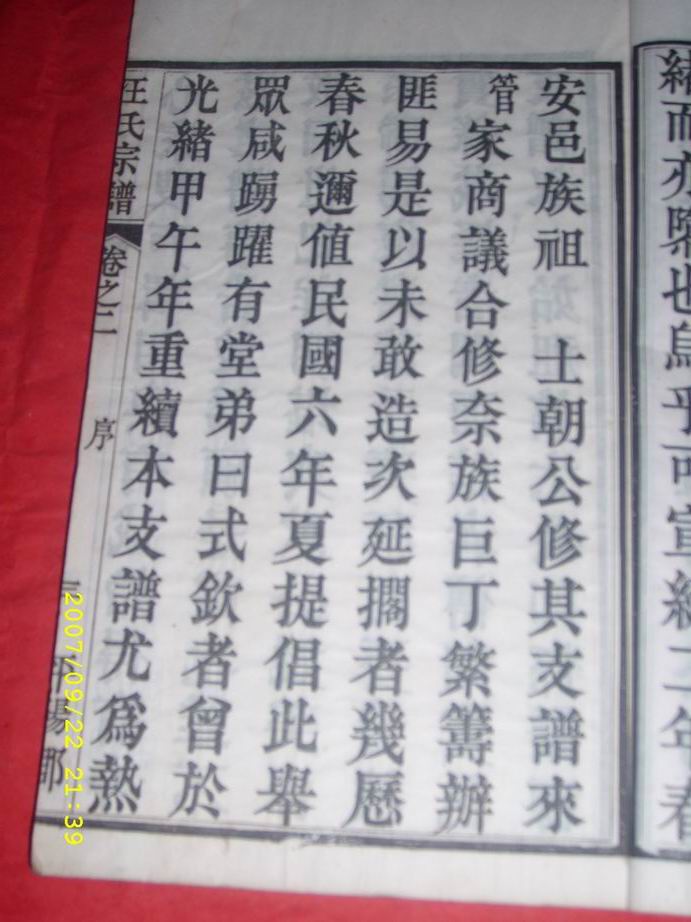 緒而亦
也烏乎
宣統二年春
安邑族祖 士朝公修其支譜來
管家商議合修奈族巨丁繁籌辦
匪易是以未敢造次延擱者幾歷
春秋邇值民國六年夏提倡此舉
眾咸踴躍有堂弟曰式欽者曾於
光緒甲午年重續本支譜尤爲熱
汪氏宗譜 卷之二 序
2007/09/22 21:39